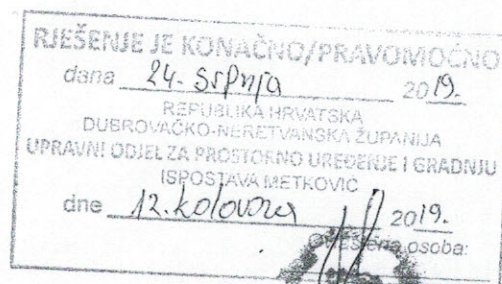 RJEŠENJE JE KONAČNO/PRAVOMOĆNO
dana 24. srpnja 2019.
REPUBLIKA HRVATSKA
DUBROVAČKO-NERETVANSKA ŽUPANIJA
UPRAVNI ODJEL ZA PROSTORNO UREĐENJE I GRADNJU
ISPOSTAVA METKOVIĆ
dne 12. kolovoza 2019.
osoba: